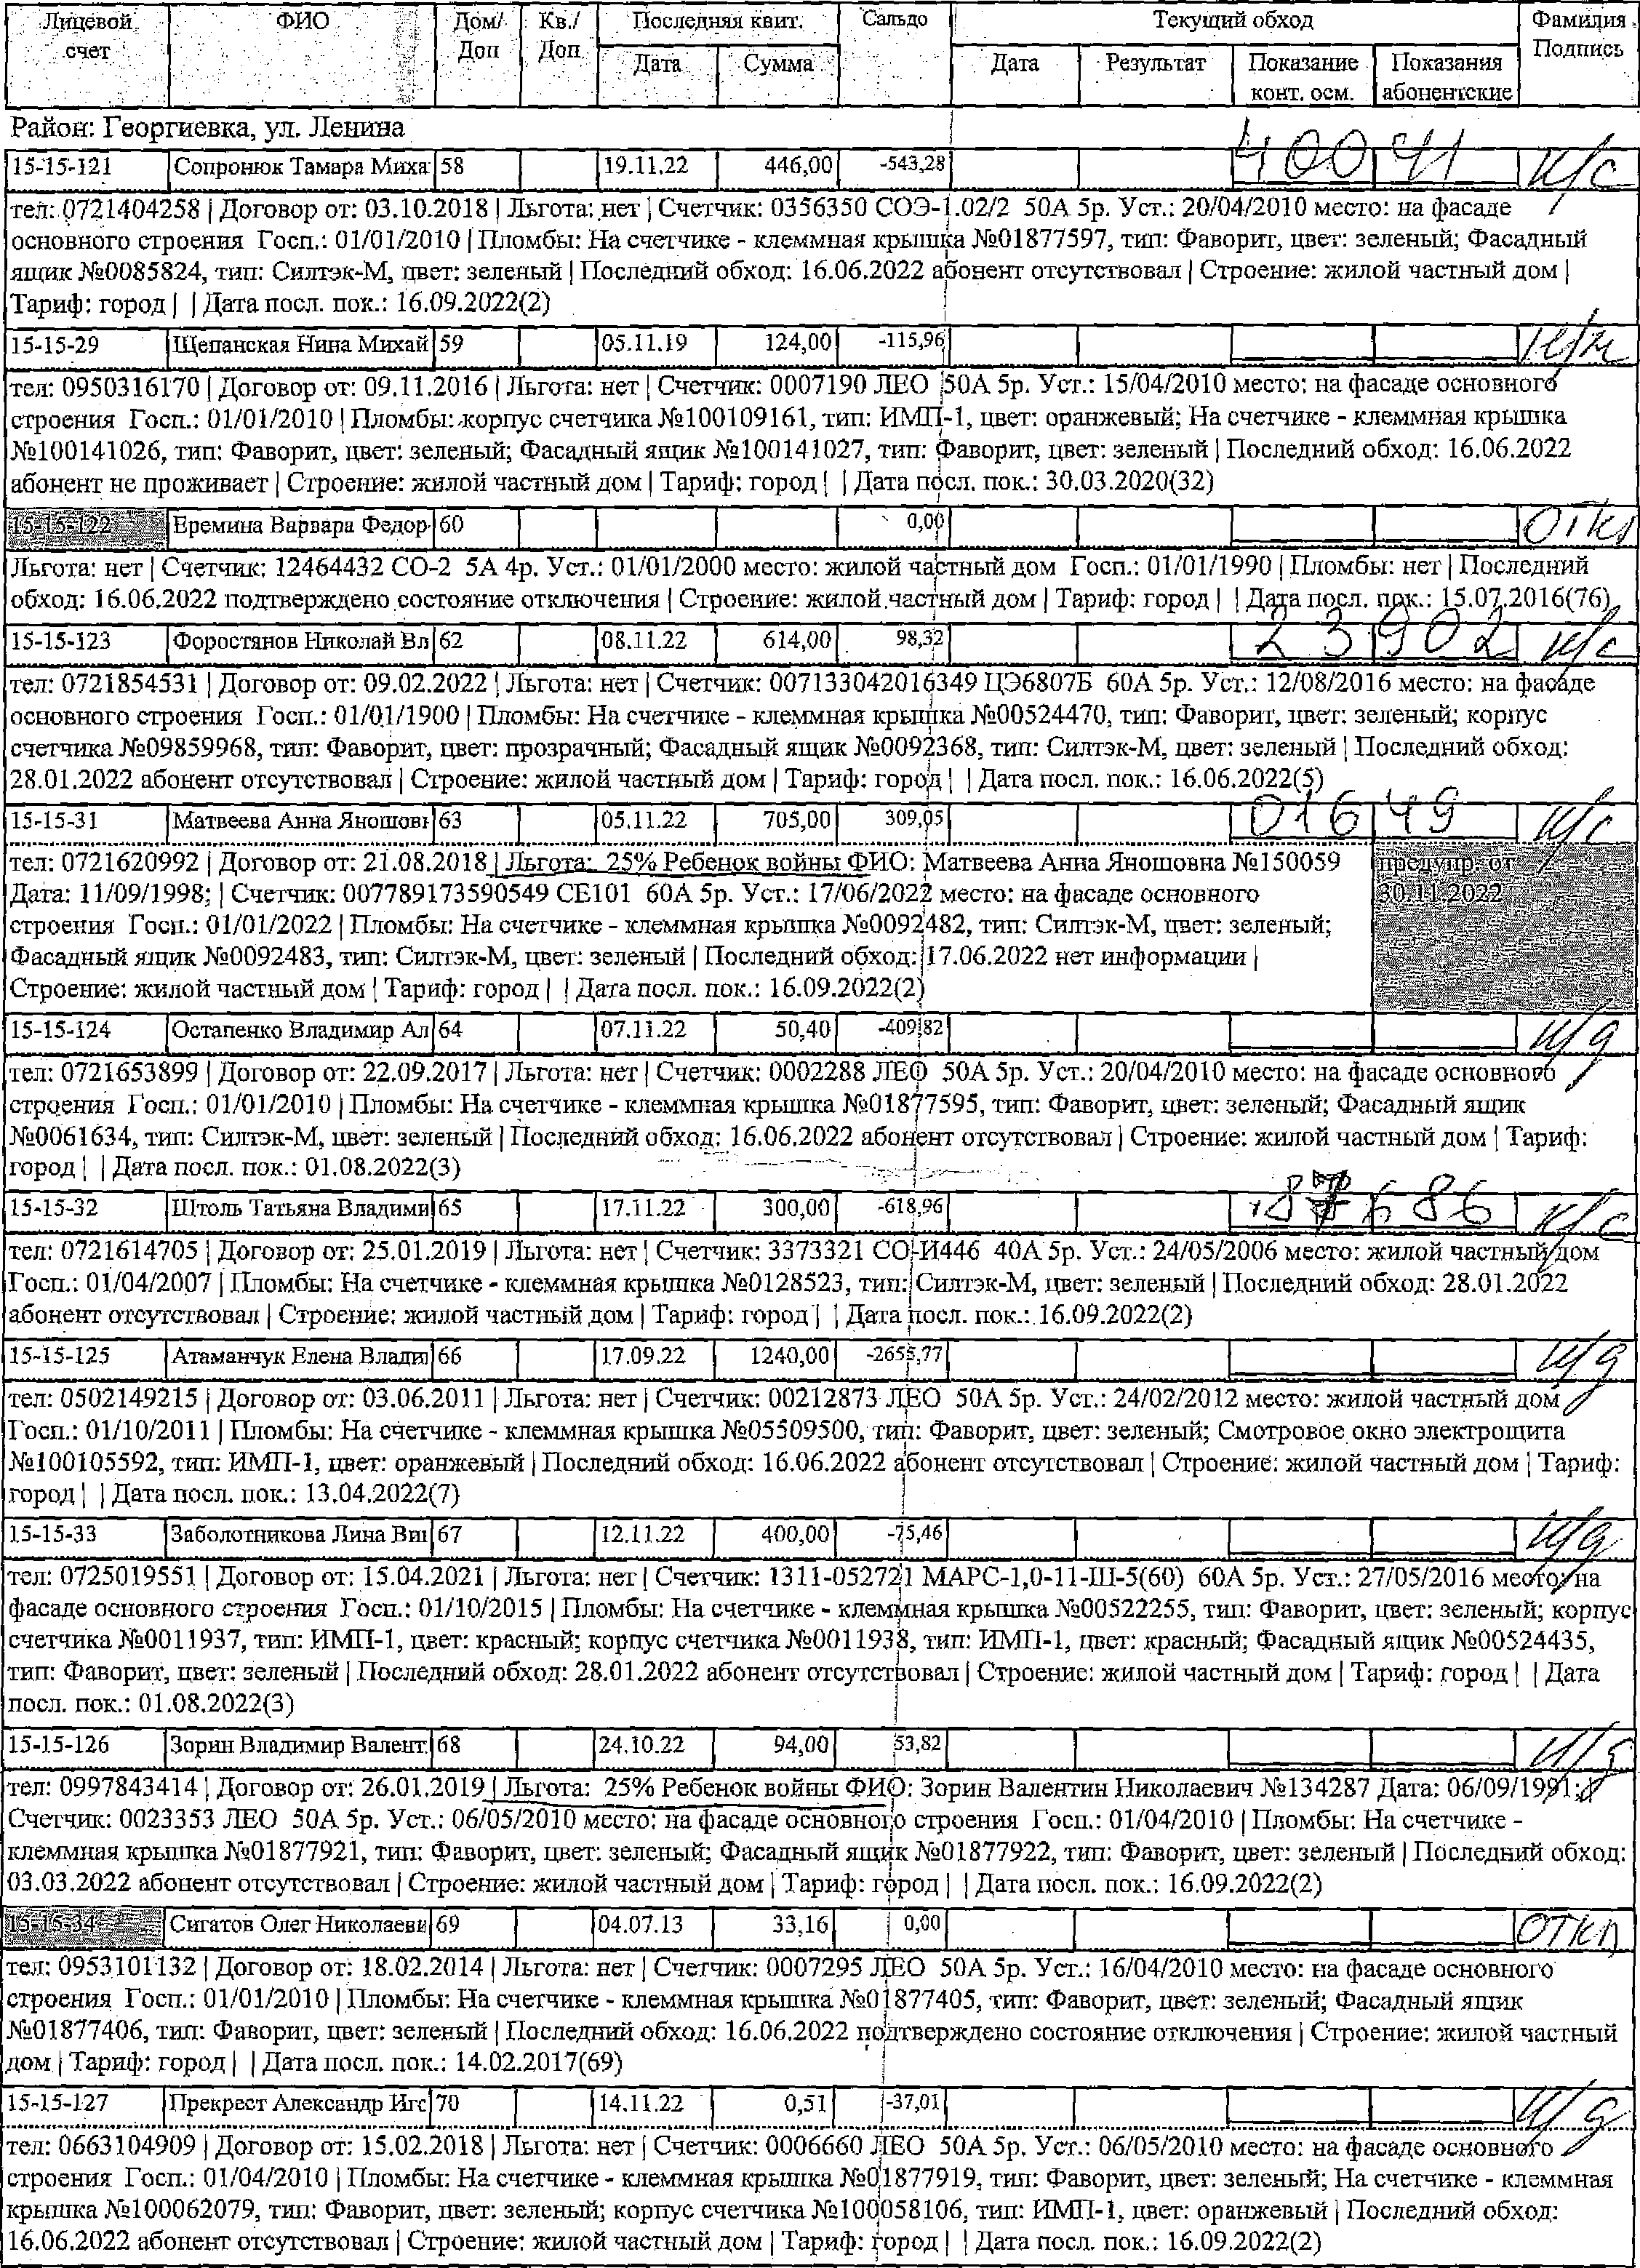 Лицевой счет | ФИО | Дом/Доп | Кв./Доп | Последняя квит. | Сальдо | Текущий обход | Фамилия Подпись
Дата | Сумма | Дата | Результат | Показание конт. осм. | Показания абонентские
Район: Георгиевка, ул. Ленина
15-15-121 | Сопронюк Тамара Миха | 58 | 19.11.22 | 446,00 | -543,28 | 40041 | к/с
тел: 0721404258 | Договор от: 03.10.2018 | Льгота: нет | Счетчик: 0356350 СОЭ-1.02/2 50А 5р. Уст.: 20/04/2010 место: на фасаде
основного строения Госп.: 01/01/2010 | Пломбы: На счетчике - клеммная крышка №01877597, тип: Фаворит, цвет: зеленый; Фасадный
ящик №0085824, тип: Силтэк-М, цвет: зеленый | Последний обход: 16.06.2022 абонент отсутствовал | Строение: жилой частный дом |
Тариф: город | | Дата посл. пок.: 16.09.2022(2)
15-15-29 | Щепанская Нина Михай | 59 | 05.11.19 | 124,00 | -115,96
тел: 0950316170 | Договор от: 09.11.2016 | Льгота: нет | Счетчик: 0007190 ЛЕО 50А 5р. Уст.: 15/04/2010 место: на фасаде основного
строения Госп.: 01/01/2010 | Пломбы: корпус счетчика №100109161, тип: ИМП-1, цвет: оранжевый; На счетчике - клеммная крышка
№100141026, тип: Фаворит, цвет: зеленый; Фасадный ящик №100141027, тип: Фаворит, цвет: зеленый | Последний обход: 16.06.2022
абонент не проживает | Строение: жилой частный дом | Тариф: город | | Дата посл. пок.: 30.03.2020(32)
15-15-122 | Еремина Варвара Федор | 60 | 0,00 | откл
Льгота: нет | Счетчик: 12464432 СО-2 5А 4р. Уст.: 01/01/2000 место: жилой частный дом Госп.: 01/01/1990 | Пломбы: нет | Последний
обход: 16.06.2022 подтверждено состояние отключения | Строение: жилой частный дом | Тариф: город | | Дата посл. пок.: 15.07.2016(76)
15-15-123 | Форостянов Николай Вл | 62 | 08.11.22 | 614,00 | 98,32 | 23902 | к/с
тел: 0721854531 | Договор от: 09.02.2022 | Льгота: нет | Счетчик: 007133042016349 ЦЭ6807Б 60А 5р. Уст.: 12/08/2016 место: на фасаде
основного строения Госп.: 01/01/1900 | Пломбы: На счетчике - клеммная крышка №00524470, тип: Фаворит, цвет: зеленый; корпус
счетчика №09859968, тип: Фаворит, цвет: прозрачный; Фасадный ящик №0092368, тип: Силтэк-М, цвет: зеленый | Последний обход:
28.01.2022 абонент отсутствовал | Строение: жилой частный дом | Тариф: город | | Дата посл. пок.: 16.06.2022(5)
15-15-31 | Матвеева Анна Яношовн | 63 | 05.11.22 | 705,00 | 309,05 | 01649 | к/с
тел: 0721620992 | Договор от: 21.08.2018 | Льгота: 25% Ребенок войны ФИО: Матвеева Анна Яношовна №150059
Дата: 11/09/1998; | Счетчик: 007789173590549 СЕ101 60А 5р. Уст.: 17/06/2022 место: на фасаде основного
строения Госп.: 01/01/2022 | Пломбы: На счетчике - клеммная крышка №0092482, тип: Силтэк-М, цвет: зеленый;
Фасадный ящик №0092483, тип: Силтэк-М, цвет: зеленый | Последний обход: 17.06.2022 нет информации |
Строение: жилой частный дом | Тариф: город | | Дата посл. пок.: 16.09.2022(2)
предупр. от
30.11.2022
15-15-124 | Остапенко Владимир Ал | 64 | 07.11.22 | 50,40 | -409,82 | н/д
тел: 0721653899 | Договор от: 22.09.2017 | Льгота: нет | Счетчик: 0002288 ЛЕО 50А 5р. Уст.: 20/04/2010 место: на фасаде основного
строения Госп.: 01/01/2010 | Пломбы: На счетчике - клеммная крышка №01877595, тип: Фаворит, цвет: зеленый; Фасадный ящик
№0061634, тип: Силтэк-М, цвет: зеленый | Последний обход: 16.06.2022 абонент отсутствовал | Строение: жилой частный дом | Тариф:
город | | Дата посл. пок.: 01.08.2022(3)
15-15-32 | Штоль Татьяна Владими | 65 | 17.11.22 | 300,00 | -618,96 | к/с
тел: 0721614705 | Договор от: 25.01.2019 | Льгота: нет | Счетчик: 3373321 СО-И446 40А 5р. Уст.: 24/05/2006 место: жилой частный дом
Госп.: 01/04/2007 | Пломбы: На счетчике - клеммная крышка №0128523, тип: Силтэк-М, цвет: зеленый | Последний обход: 28.01.2022
абонент отсутствовал | Строение: жилой частный дом | Тариф: город | | Дата посл. пок.: 16.09.2022(2)
15-15-125 | Атаманчук Елена Влади | 66 | 17.09.22 | 1240,00 | -2655,77 | н/д
тел: 0502149215 | Договор от: 03.06.2011 | Льгота: нет | Счетчик: 00212873 ЛЕО 50А 5р. Уст.: 24/02/2012 место: жилой частный дом
Госп.: 01/10/2011 | Пломбы: На счетчике - клеммная крышка №05509500, тип: Фаворит, цвет: зеленый; Смотровое окно электрощита
№100105592, тип: ИМП-1, цвет: оранжевый | Последний обход: 16.06.2022 абонент отсутствовал | Строение: жилой частный дом | Тариф:
город | | Дата посл. пок.: 13.04.2022(7)
15-15-33 | Заболотникова Лина Ви | 67 | 12.11.22 | 400,00 | -75,46 | н/д
тел: 0725019551 | Договор от: 15.04.2021 | Льгота: нет | Счетчик: 1311-052721 МАРС-1,0-11-Ш-5(60) 60А 5р. Уст.: 27/05/2016 место: на
фасаде основного строения Госп.: 01/10/2015 | Пломбы: На счетчике - клеммная крышка №00522255, тип: Фаворит, цвет: зеленый; корпус
счетчика №0011937, тип: ИМП-1, цвет: красный; корпус счетчика №0011938, тип: ИМП-1, цвет: красный; Фасадный ящик №00524435,
тип: Фаворит, цвет: зеленый | Последний обход: 28.01.2022 абонент отсутствовал | Строение: жилой частный дом | Тариф: город | | Дата
посл. пок.: 01.08.2022(3)
15-15-126 | Зорин Владимир Валент | 68 | 24.10.22 | 94,00 | 53,82 | н/д
тел: 0997843414 | Договор от: 26.01.2019 | Льгота: 25% Ребенок войны ФИО: Зорин Валентин Николаевич №134287 Дата: 06/09/1991; |
Счетчик: 0023353 ЛЕО 50А 5р. Уст.: 06/05/2010 место: на фасаде основного строения Госп.: 01/04/2010 | Пломбы: На счетчике -
клеммная крышка №01877921, тип: Фаворит, цвет: зеленый; Фасадный ящик №01877922, тип: Фаворит, цвет: зеленый | Последний обход:
03.03.2022 абонент отсутствовал | Строение: жилой частный дом | Тариф: город | | Дата посл. пок.: 16.09.2022(2)
15-15-34 | Сигатов Олег Николаеви | 69 | 04.07.13 | 33,16 | 0,00 | откл
тел: 0953101132 | Договор от: 18.02.2014 | Льгота: нет | Счетчик: 0007295 ЛЕО 50А 5р. Уст.: 16/04/2010 место: на фасаде основного
строения Госп.: 01/01/2010 | Пломбы: На счетчике - клеммная крышка №01877405, тип: Фаворит, цвет: зеленый; Фасадный ящик
№01877406, тип: Фаворит, цвет: зеленый | Последний обход: 16.06.2022 подтверждено состояние отключения | Строение: жилой частный
дом | Тариф: город | | Дата посл. пок.: 14.02.2017(69)
15-15-127 | Прекрест Александр Иго | 70 | 14.11.22 | 0,51 | -37,01 | н/д
тел: 0663104909 | Договор от: 15.02.2018 | Льгота: нет | Счетчик: 0006660 ЛЕО 50А 5р. Уст.: 06/05/2010 место: на фасаде основного
строения Госп.: 01/04/2010 | Пломбы: На счетчике - клеммная крышка №01877919, тип: Фаворит, цвет: зеленый; На счетчике - клеммная
крышка №100062079, тип: Фаворит, цвет: зеленый; корпус счетчика №100058106, тип: ИМП-1, цвет: оранжевый | Последний обход:
16.06.2022 абонент отсутствовал | Строение: жилой частный дом | Тариф: город | | Дата посл. пок.: 16.09.2022(2)